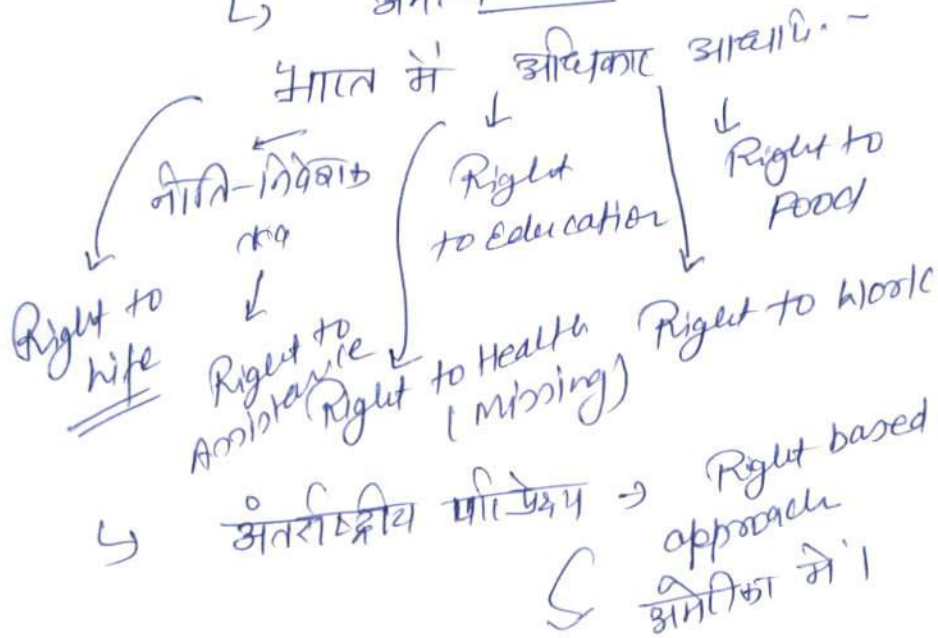 भारत में अधिकार आधारि. -
नीति-निदेशक
तत्व
Right
to Education
Right to
Food
Right to
Life
Right to
Assistance
Right to Health
(Missing)
Right to Work
↳ अंतर्राष्ट्रीय परिप्रेक्ष्य → Right based
approach
अमेरिका में।